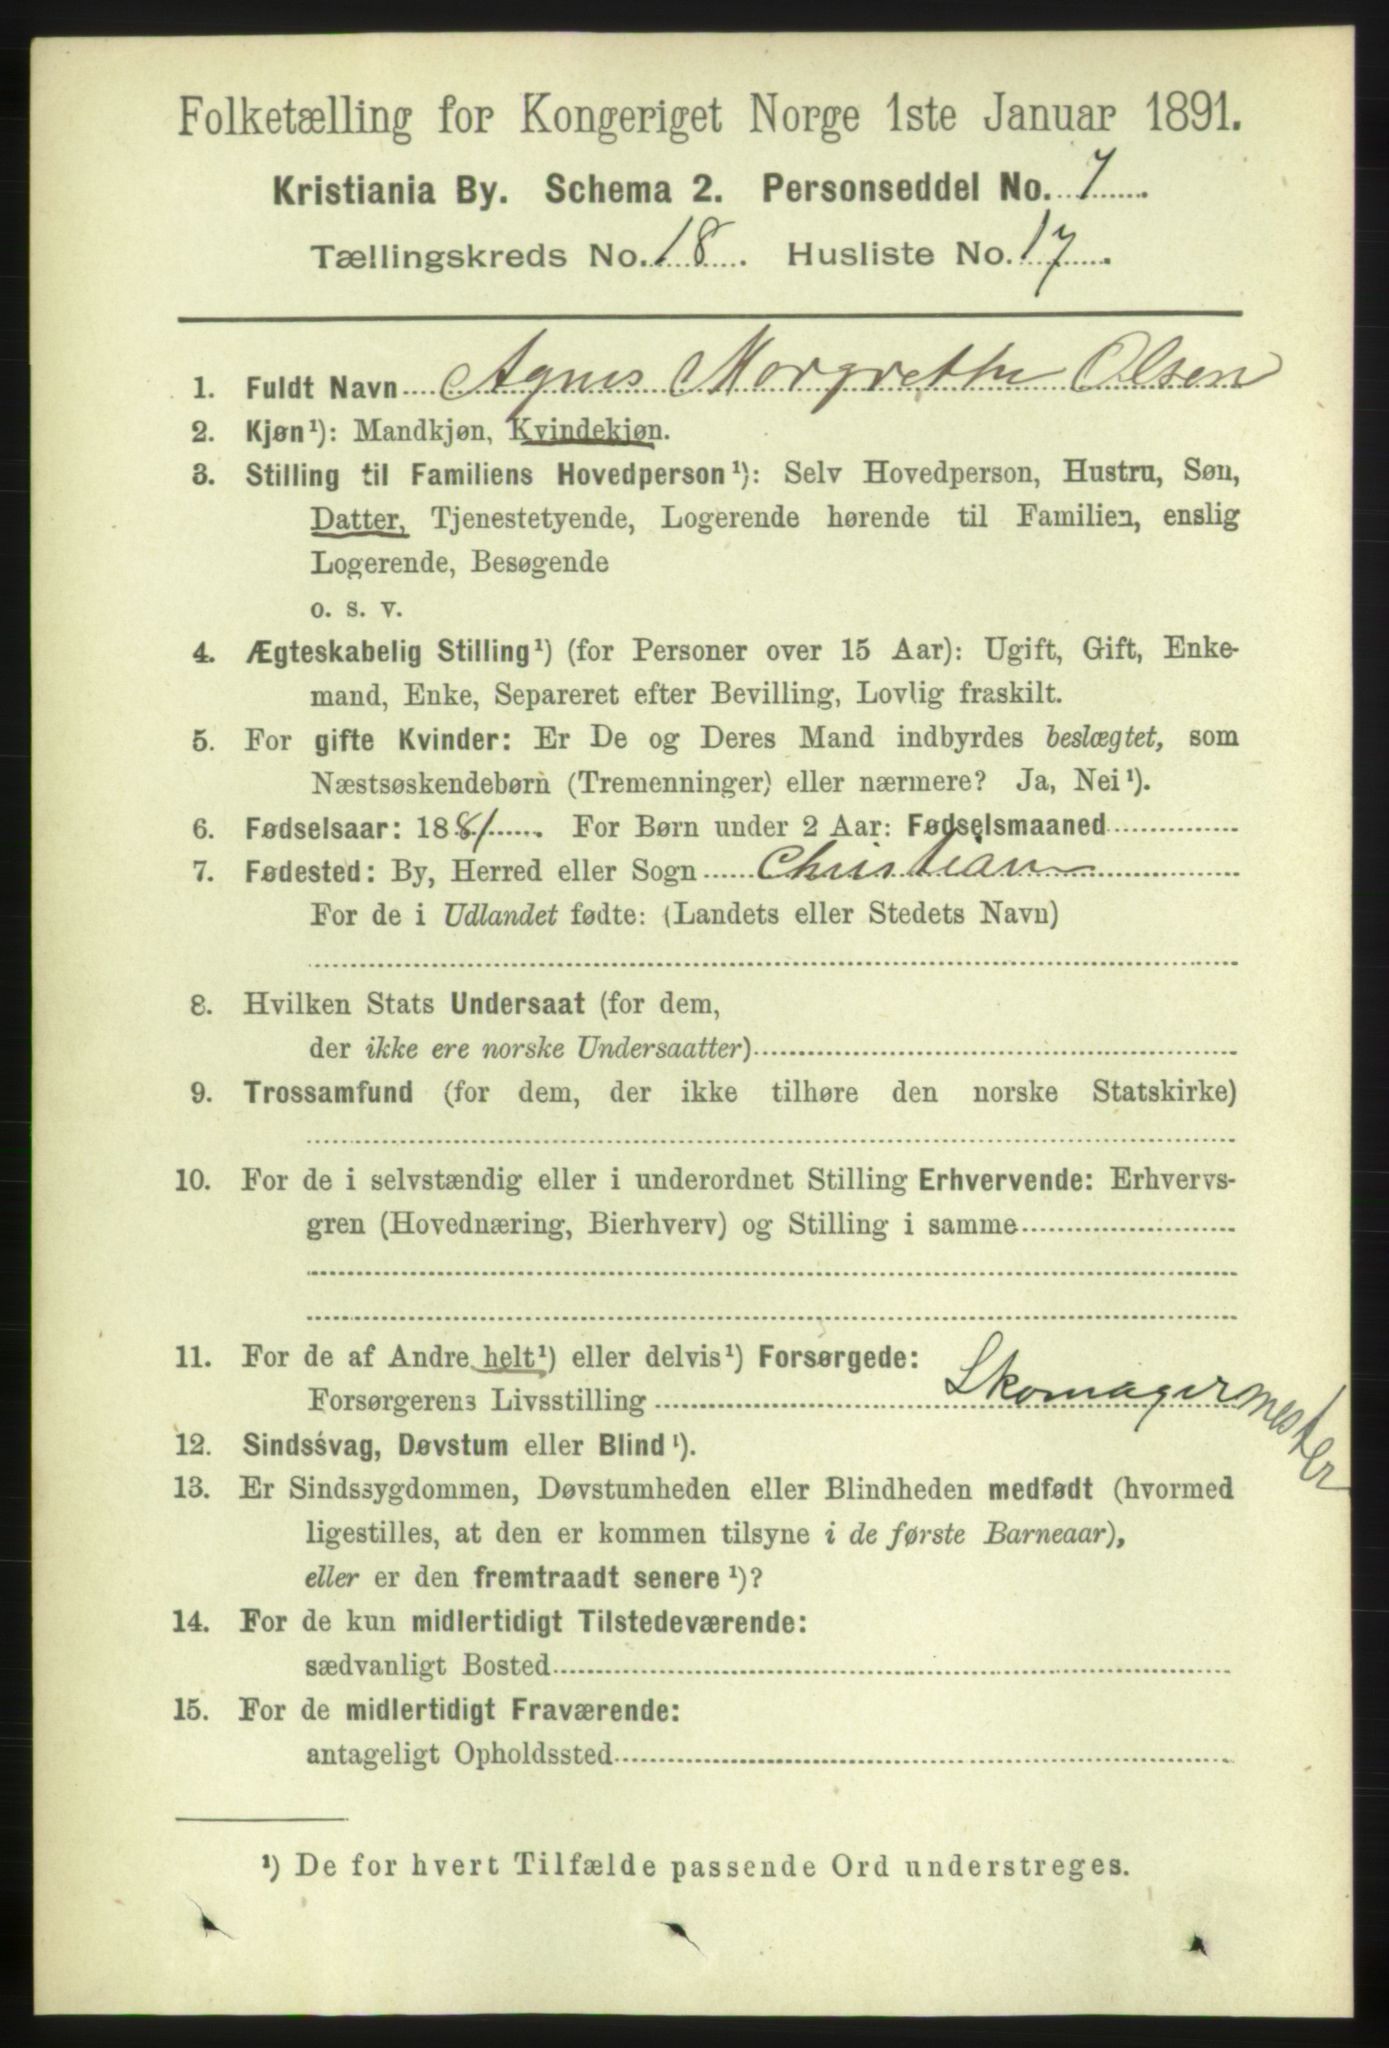 Folketælling for Kongeriget Norge 1ste Januar 1891.
Kristiania By. Schema 2. Personseddel No. 7
Tællingskreds No. 18. Husliste No. 17.
1. Fuldt Navn Agnes Margrethe Olsen
2. Kjøn¹): Mandkjøn, Kvindekjøn.
3. Stilling til Familiens Hovedperson¹): Selv Hovedperson, Hustru, Søn,
Datter, Tjenestetyende, Logerende hørende til Familien, enslig
Logerende, Besøgende
o. s. v.
4. Ægteskabelig Stilling¹) (for Personer over 15 Aar): Ugift, Gift, Enke-
mand, Enke, Separeret efter Bevilling, Lovlig fraskilt.
5. For gifte Kvinder: Er De og Deres Mand indbyrdes beslægtet, som
Næstsøskendebørn (Tremenninger) eller nærmere? Ja, Nei¹).
6. Fødselsaar: 1881. For Børn under 2 Aar: Fødselsmaaned
7. Fødested: By, Herred eller Sogn Christian
For de i Udlandet fødte: (Landets eller Stedets Navn)
8. Hvilken Stats Undersaat (for dem,
der ikke ere norske Undersaatter)
9. Trossamfund (for dem, der ikke tilhøre den norske Statskirke)
10. For de i selvstændig eller i underordnet Stilling Erhvervende: Erhvervs-
gren (Hovednæring, Bierhverv) og Stilling i samme
11. For de af Andre helt¹) eller delvis¹) Forsørgede:
Forsørgerens Livsstilling Skomagermester
12. Sindssvag, Døvstum eller Blind¹).
13. Er Sindssygdommen, Døvstumheden eller Blindheden medfødt (hvormed
ligestilles, at den er kommen tilsyne i de første Barneaar),
eller er den fremtraadt senere¹)?
14. For de kun midlertidigt Tilstedeværende:
sædvanligt Bosted
15. For de midlertidigt Fraværende:
antageligt Opholdssted
¹) De for hvert Tilfælde passende Ord understreges.